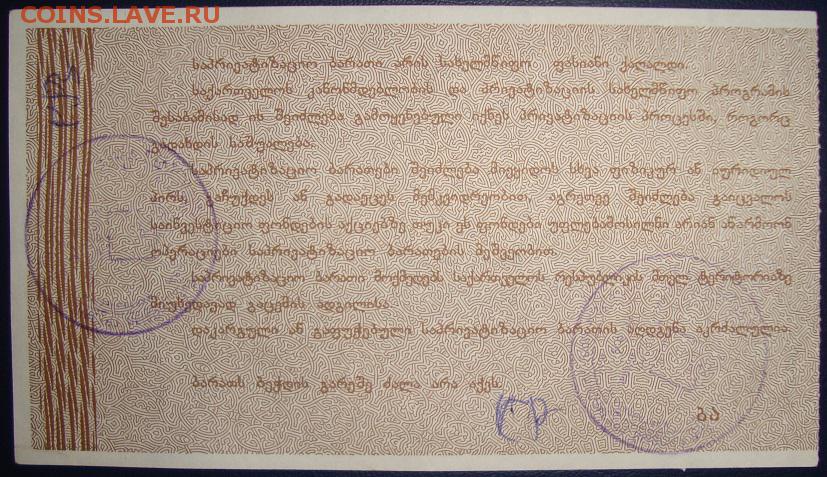 COINS.LAVE.RU
საპრივატიზაციო ბარათი არის სახელმწიფო ფასიანი ქაღალდი.
საქართველოს კანონმდებლობის და პრივატიზაციის სახელმწიფო პროგრამის
შესაბამისად ის შეიძლება გამოყენებული იქნეს პრივატიზაციის პროცესში, როგორც
გადახდის საშუალება.
საპრივატიზაციო ბარათები შეიძლება მიეყიდოს სხვა ფიზიკურ ან იურიდიულ
პირს, გაჩუქდეს ან გადაეცეს მემკვიდრეობით, აგრეთვე შეიძლება გაიცვალოს
საინვესტიციო ფონდების აქციებზე თუკი ეს ფონდები უფლებამოსილნი არიან აწარმოონ
ოპერაციები საპრივატიზაციო ბარათების მეშვეობით.
საპრივატიზაციო ბარათი მოქმედებს საქართველოს რესპუბლიკის მთელ ტერიტორიაზე
მიუხედავად გაცემის ადგილისა.
დაკარგული ან გაფუჭებული საპრივატიზაციო ბარათის აღდგენა აკრძალულია.
ბარათს ბეჭდის გარეშე ძალა არა აქვს.
ბა